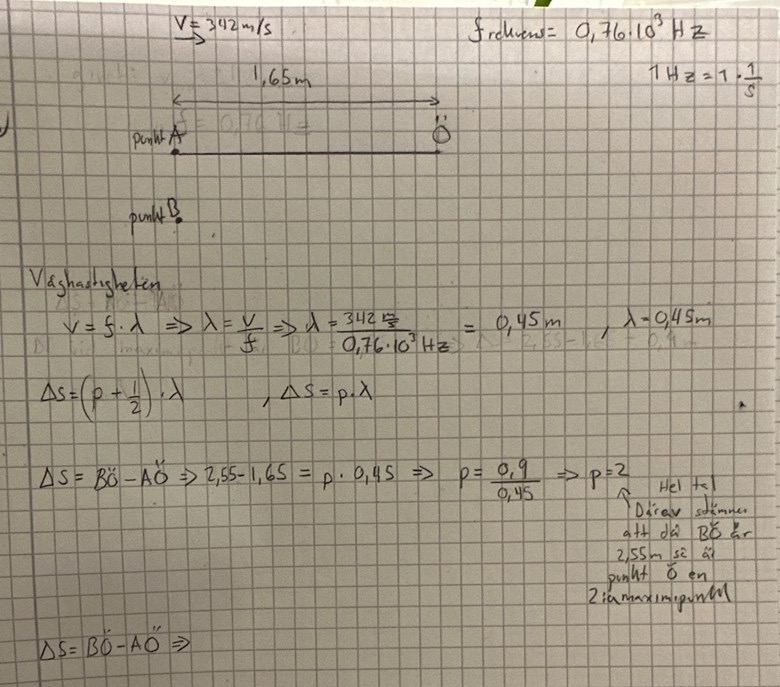 V = 342 m/s
frekvens = 0,76·10³ Hz
1 Hz = 1 · 1/s
1,65m
punkt A
Ö
punkt B
Våghastigheten
v = f · λ ⇒ λ = v/f ⇒ λ = 342 m/s / 0,76·10³ Hz = 0,45 m , λ = 0,45m
Δs = (p + 1/2) · λ , Δs = p · λ
Δs = BÖ - AÖ ⇒ 2,55 - 1,65 = p · 0,45 ⇒ p = 0,9/0,45 ⇒ p = 2
Hel tal
Därav stämmer
att då BÖ är
2,55m så är
punkt Ö en
2:a maximipunkt
Δs = BÖ - AÖ ⇒